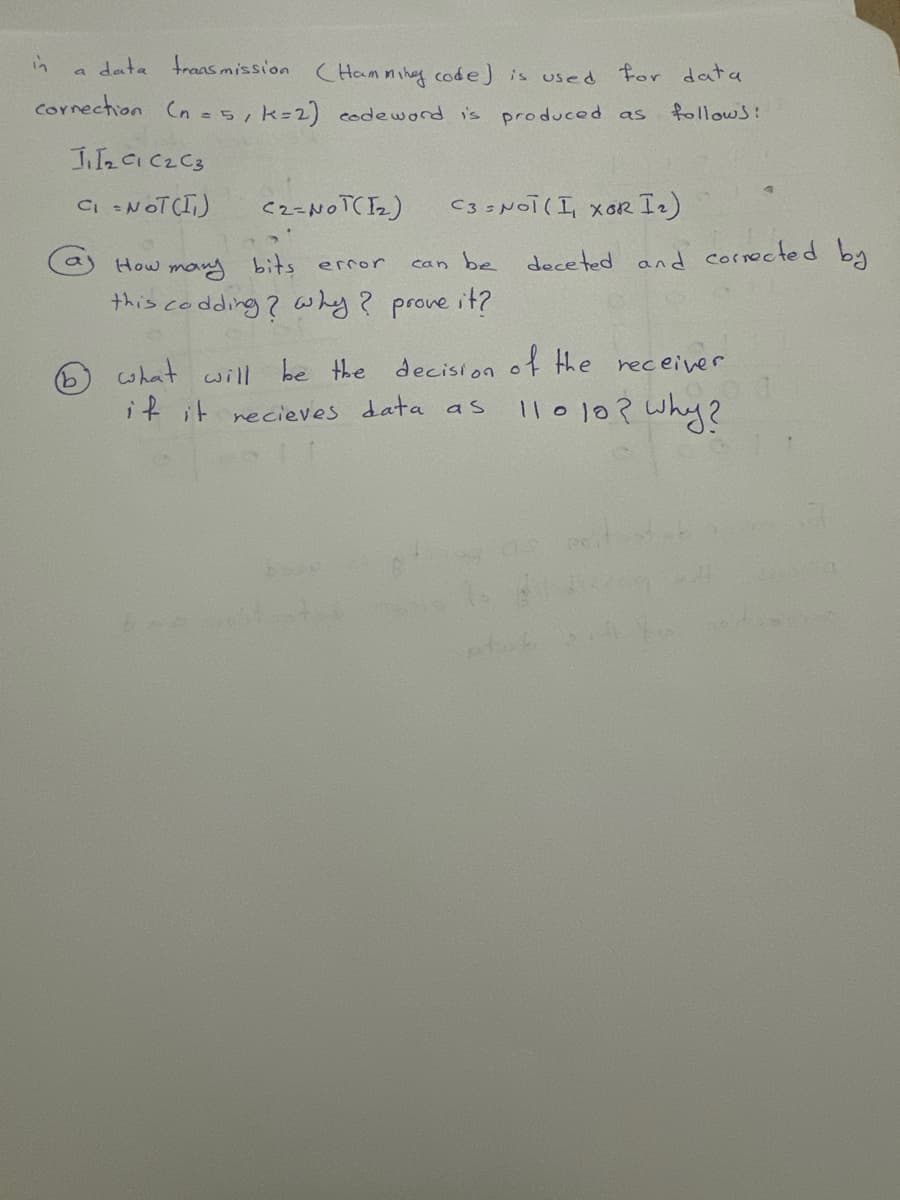 in a data transmission (Hamming code) is used for data
correction (n = 5, k=2) codeword is produced as follows:
I₁I₂ C₁ C₂C₃
C₁ = NOT(I₁) C₂=NOT(I₂) C₃ = NOT(I₁ XOR I₂)
a) How many bits error can be deceted and corrected by
this codding? why? prove it?
b) what will be the decision of the receiver
if it recieves data as 11010? why?